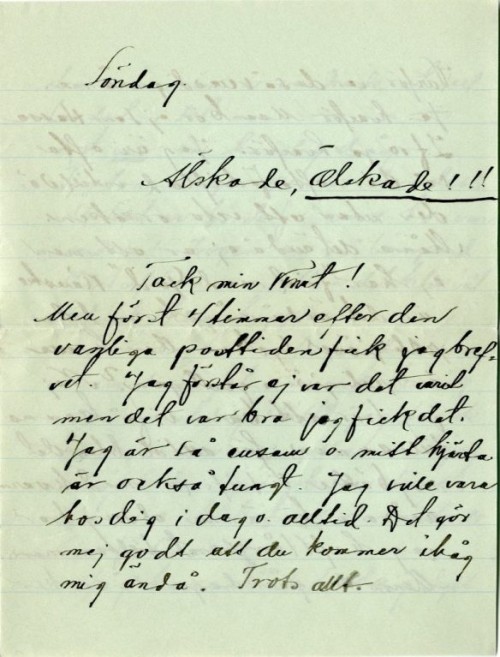 Söndag.
Älskade, Älskade!!!
Tack min Knut!
Men först 4 timmar efter den
vanliga posttiden fick jag bref-
vet. Jag förstår ej var det varit
men det var bra jag fick det.
Jag är så ensam o. mitt hjärta
är också tungt. Jag ville vara
hos dig i dag o. alltid. Det gör
mej godt att du kommer ihåg
mig ändå. Trots allt.